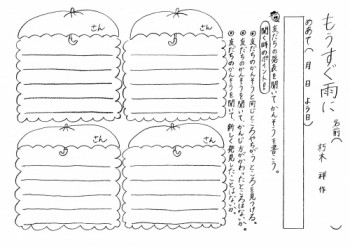 もうすぐ雨に
朽木 祥 作
名前(　　　)
めあて(　月　日　よう日)
友だちの発表を聞いてかんそうを書こう。
聞く時のポイント
友だちのかんそうと同じところやちがうところを見つける。
友だちのかんそうを聞いて、かんじ方がかわったところはないか。
友だちのかんそうを聞いて、新しく発見したことはないか。
さん
さん
さん
さん